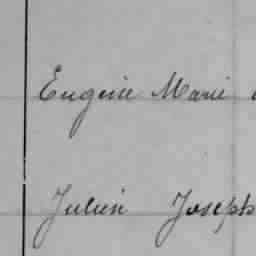 Eugénie Marie
Julien Joseph